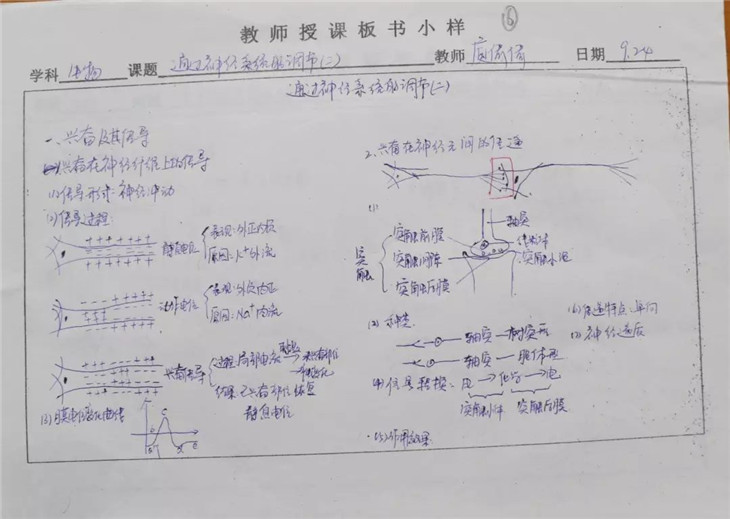 教师授课板书小样
⑥
学科 生物 课题 通过神经系统的调节(二) 教师 日期 9.24
通过神经系统的调节(二)
一、兴奋及其传导
兴奋在神经纤维上的传导
(1)传导形式:神经冲动
(2)传导过程:
+++ ++++
静息电位
表现:外正内负
原因:K+外流
动作电位
表现:外负内正
原因:Na+内流
兴奋传导
过程:局部电流
未兴奋部位
结果:已兴奋部位恢复
静息电位
(3)膜电位变化曲线
2.兴奋在神经元间的传递
(1)
突触
突触前膜
突触间隙
突触后膜
轴突
突触小泡
(2)种类
轴突—树突型
轴突—胞体型
信号转换:电→化学→电
突触小体 突触后膜
(5)作用效果
(6)传递特点:单向
(7)神经递质